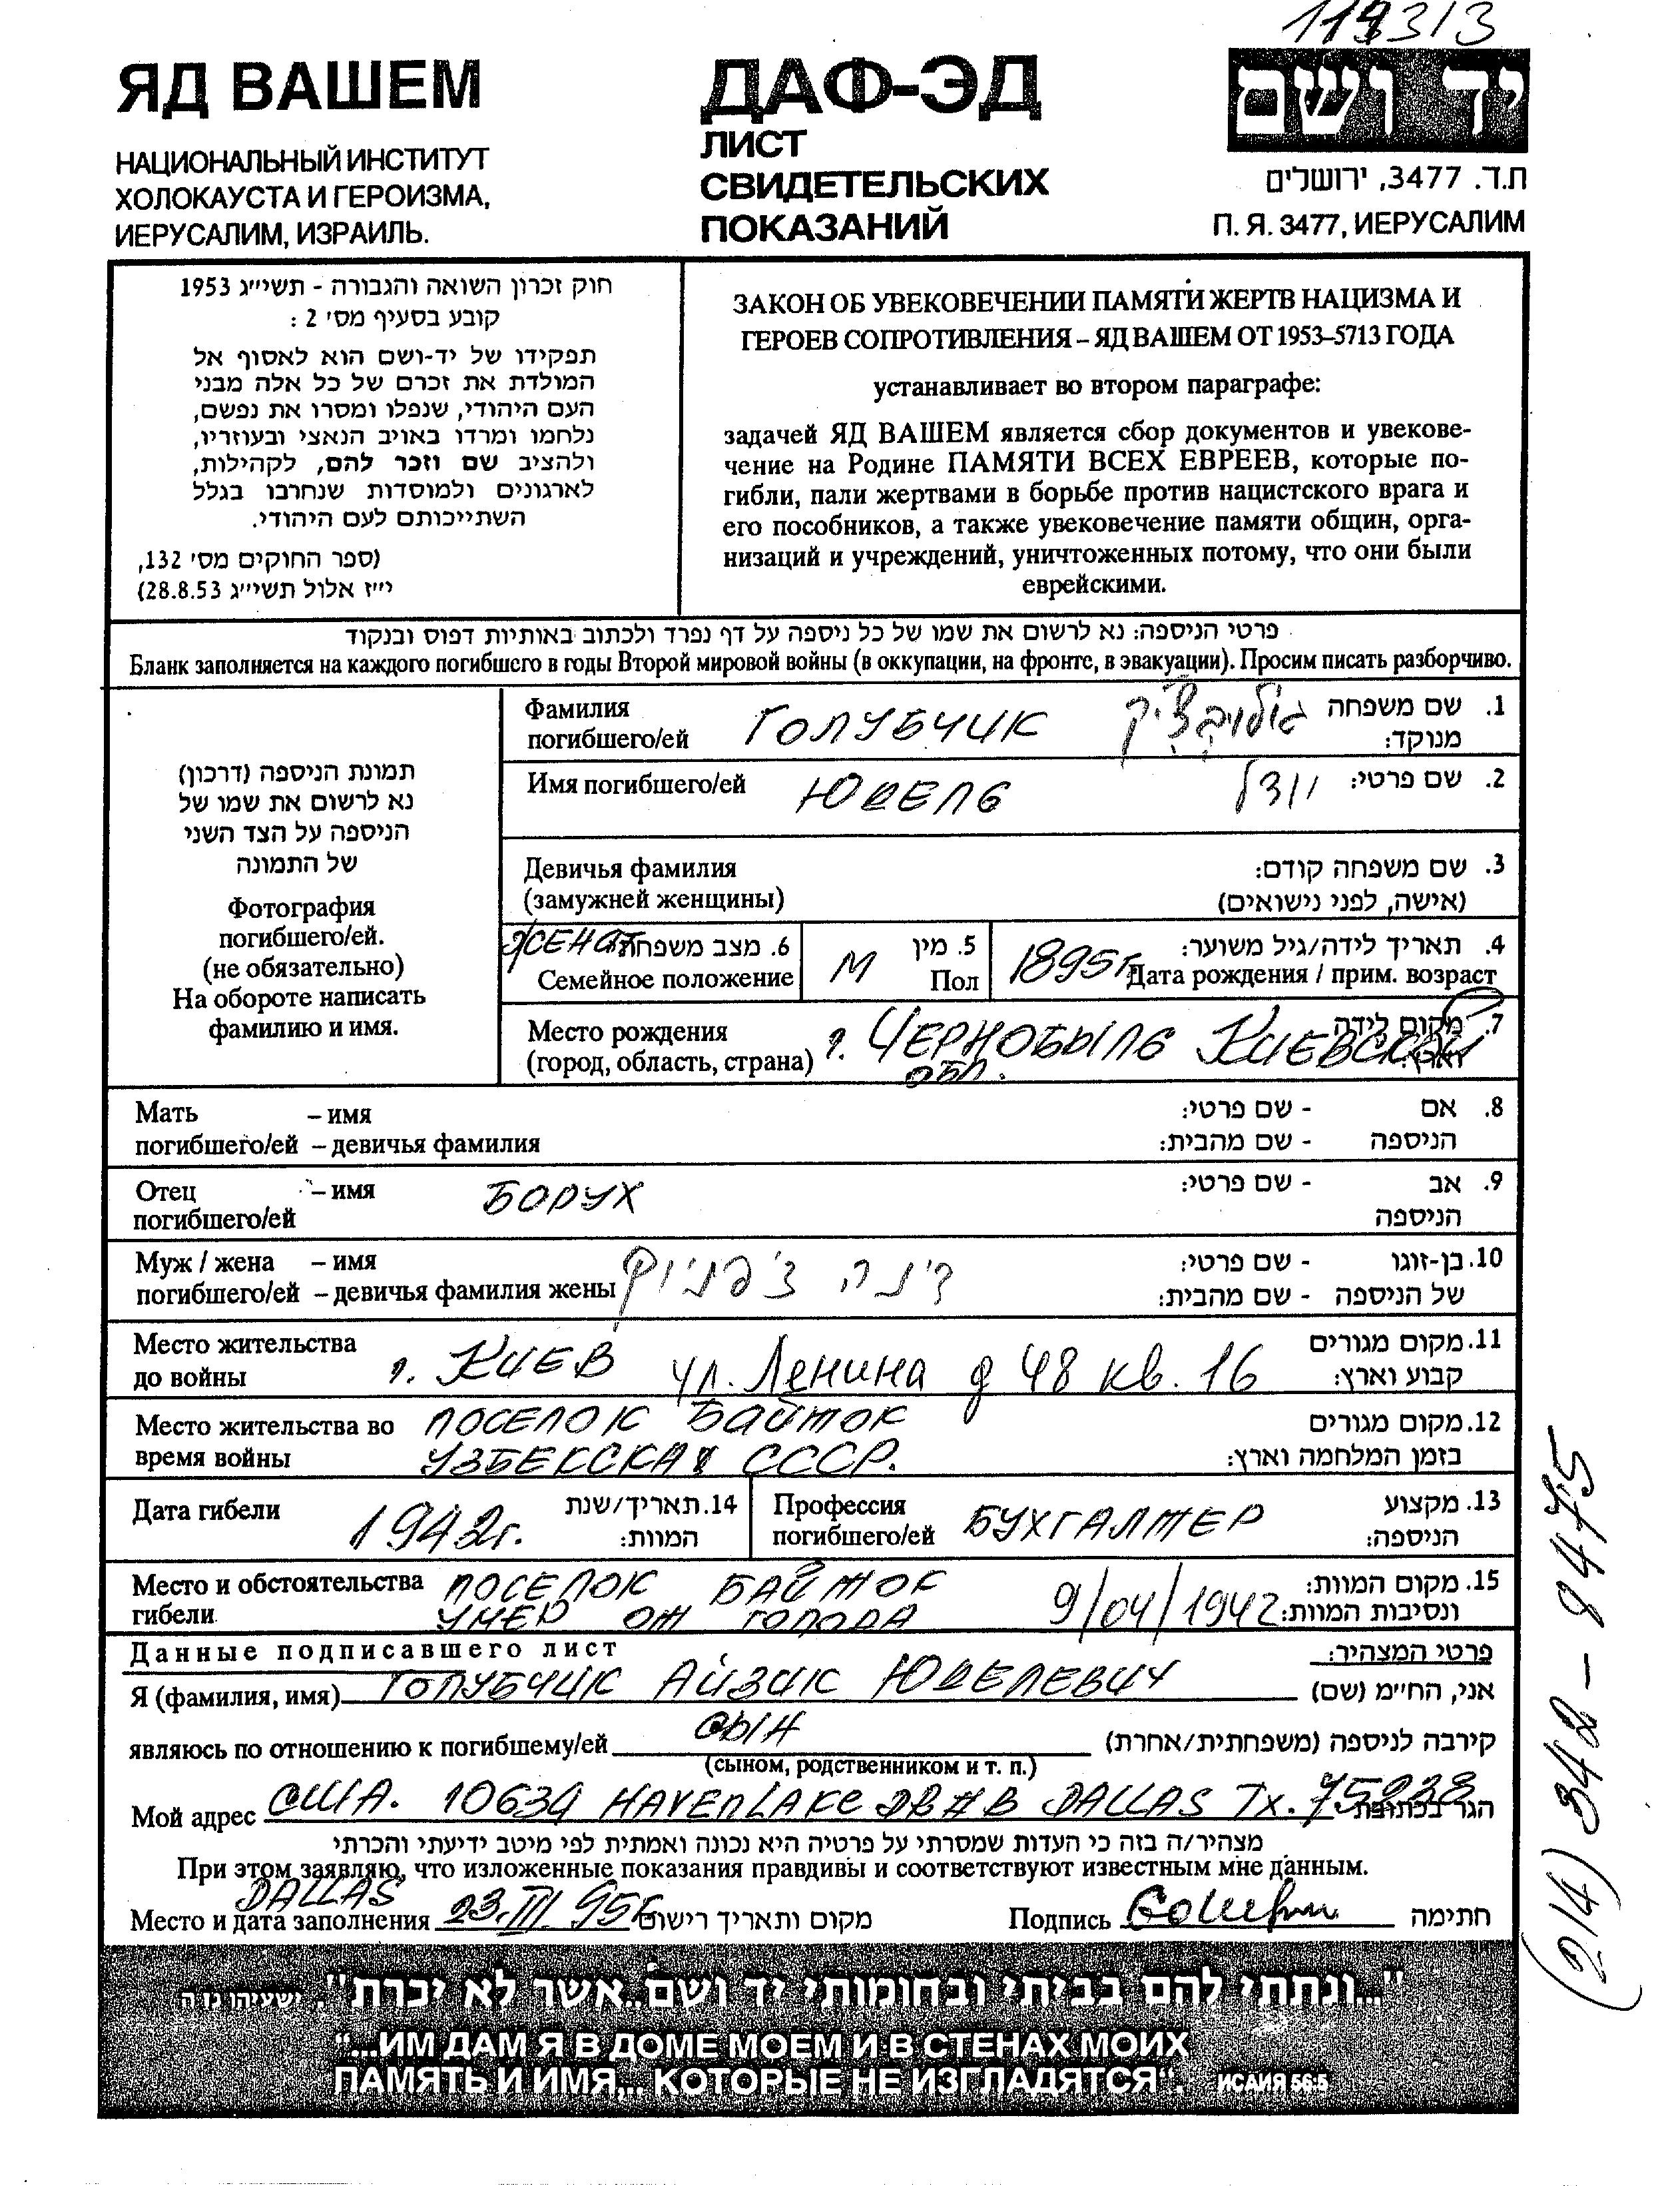 119313
ЯД ВАШЕМ
НАЦИОНАЛЬНЫЙ ИНСТИТУТ
ХОЛОКАУСТА И ГЕРОИЗМА,
ИЕРУСАЛИМ, ИЗРАИЛЬ.
ДАФ-ЭД
ЛИСТ
СВИДЕТЕЛЬСКИХ
ПОКАЗАНИЙ
יד ושם
ת.ד. 3477, ירושלים
П. Я. 3477, ИЕРУСАЛИМ
חוק זכרון השואה והגבורה - תשי״ג 1953
קובע בסעיף מס׳ 2 :
תפקידו של יד-ושם הוא לאסוף אל
המולדת את זכרם של כל אלה מבני
העם היהודי, שנפלו ומסרו את נפשם,
נלחמו ומרדו באויב הנאצי ובעוזריו,
ולהציב שם וזכר להם, לקהילות,
לארגונים ולמוסדות שנחרבו בגלל
השתייכותם לעם היהודי.
(ספר החוקים מס׳ 132,
י״ז אלול תשי״ג 28.8.53)
ЗАКОН ОБ УВЕКОВЕЧЕНИИ ПАМЯТИ ЖЕРТВ НАЦИЗМА И
ГЕРОЕВ СОПРОТИВЛЕНИЯ – ЯД ВАШЕМ ОТ 1953–5713 ГОДА
устанавливает во втором параграфе:
задачей ЯД ВАШЕМ является сбор документов и увекове-
чение на Родине ПАМЯТИ ВСЕХ ЕВРЕЕВ, которые по-
гибли, пали жертвами в борьбе против нацистского врага и
его пособников, а также увековечение памяти общин, орга-
низаций и учреждений, уничтоженных потому, что они были
еврейскими.
פרטי הניספה: נא לרשום את שמו של כל ניספה על דף נפרד ולכתוב באותיות דפוס ובנקוד
Бланк заполняется на каждого погибшего в годы Второй мировой войны (в оккупации, на фронте, в эвакуации). Просим писать разборчиво.
תמונת הניספה (דרכון)
נא לרשום את שמו של
הניספה על הצד השני
של התמונה
Фотография
погибшего/ей.
(не обязательно)
На обороте написать
фамилию и имя.
Фамилия ГОЛУБЧИК גולובצ'יק 1. שם משפחה
погибшего/ей מנוקד:
Имя погибшего/ей ЮДЕЛЬ יודל 2. שם פרטי:
Девичья фамилия 3. שם משפחה קודם:
(замужней женщины) (אישה, לפני נישואים)
ЖЕНАТ 6. מצב משפחתי M 5. מין 1895г. 4. תאריך לידה/גיל משוער:
Семейное положение Пол Дата рождения / прим. возраст
Место рождения г. ЧЕРНОБЫЛЬ КИЕВСКОЙ 7. מקום לידה
(город, область, страна) ОБЛ. וארץ:
Мать – имя 8. אם - שם פרטי:
погибшего/ей – девичья фамилия הניספה - שם מהבית:
Отец – имя БОРУХ 9. אב - שם פרטי:
погибшего/ей הניספה
Муж / жена – имя 10. בן-זוגו - שם פרטי:
погибшего/ей – девичья фамилия жены דינה של הניספה - שם מהבית:
Место жительства г. КИЕВ ул. Ленина д 48 кв. 16 11. מקום מגורים
до войны קבוע וארץ:
Место жительства во ПОСЕЛОК БАЙТОК 12. מקום מגורים
время войны УЗБЕКСКАЯ СССР. בזמן המלחמה וארץ:
Дата гибели 1942г. 14. תאריך/שנת המוות:
Профессия БУХГАЛТЕР 13. מקצוע
погибшего/ей הניספה:
Место и обстоятельства ПОСЕЛОК БАЙТОК 15. מקום המוות:
гибели УМЕР ОТ ГОЛОДА 9/04/1942 ונסיבות המוות:
Данные подписавшего лист פרטי המצהיר:
Я (фамилия, имя) ГОЛУБЧИК АЙЗИК ЮДЕЛЕВИЧ אני, החי״מ (שם)
являюсь по отношению к погибшему/ей СЫН קירבה לניספה (משפחתית/אחרת)
(сыном, родственником и т. п.)
Мой адрес США. 10634 HAVENLAKE DR#B DALLAS Tx. 75238 הגר בכתובת
מצהיר/ה בזה כי העדות שמסרתי על פרטיה היא נכונה ואמתית לפי מיטב ידיעתי והכרתי
При этом заявляю, что изложенные показания правдивы и соответствуют известным мне данным.
DALLAS
Место и дата заполнения 23.III.95г. מקום ותאריך רישום Подпись חתימה
"...ונתתי להם בביתי ובחומותי יד ושם..אשר לא יכרת". ישעיהו נו ה
"...ИМ ДАМ Я В ДОМЕ МОЕМ И В СТЕНАХ МОИХ
ПАМЯТЬ И ИМЯ... КОТОРЫЕ НЕ ИЗГЛАДЯТСЯ". ИСАИЯ 56:5
(214) 342-8475